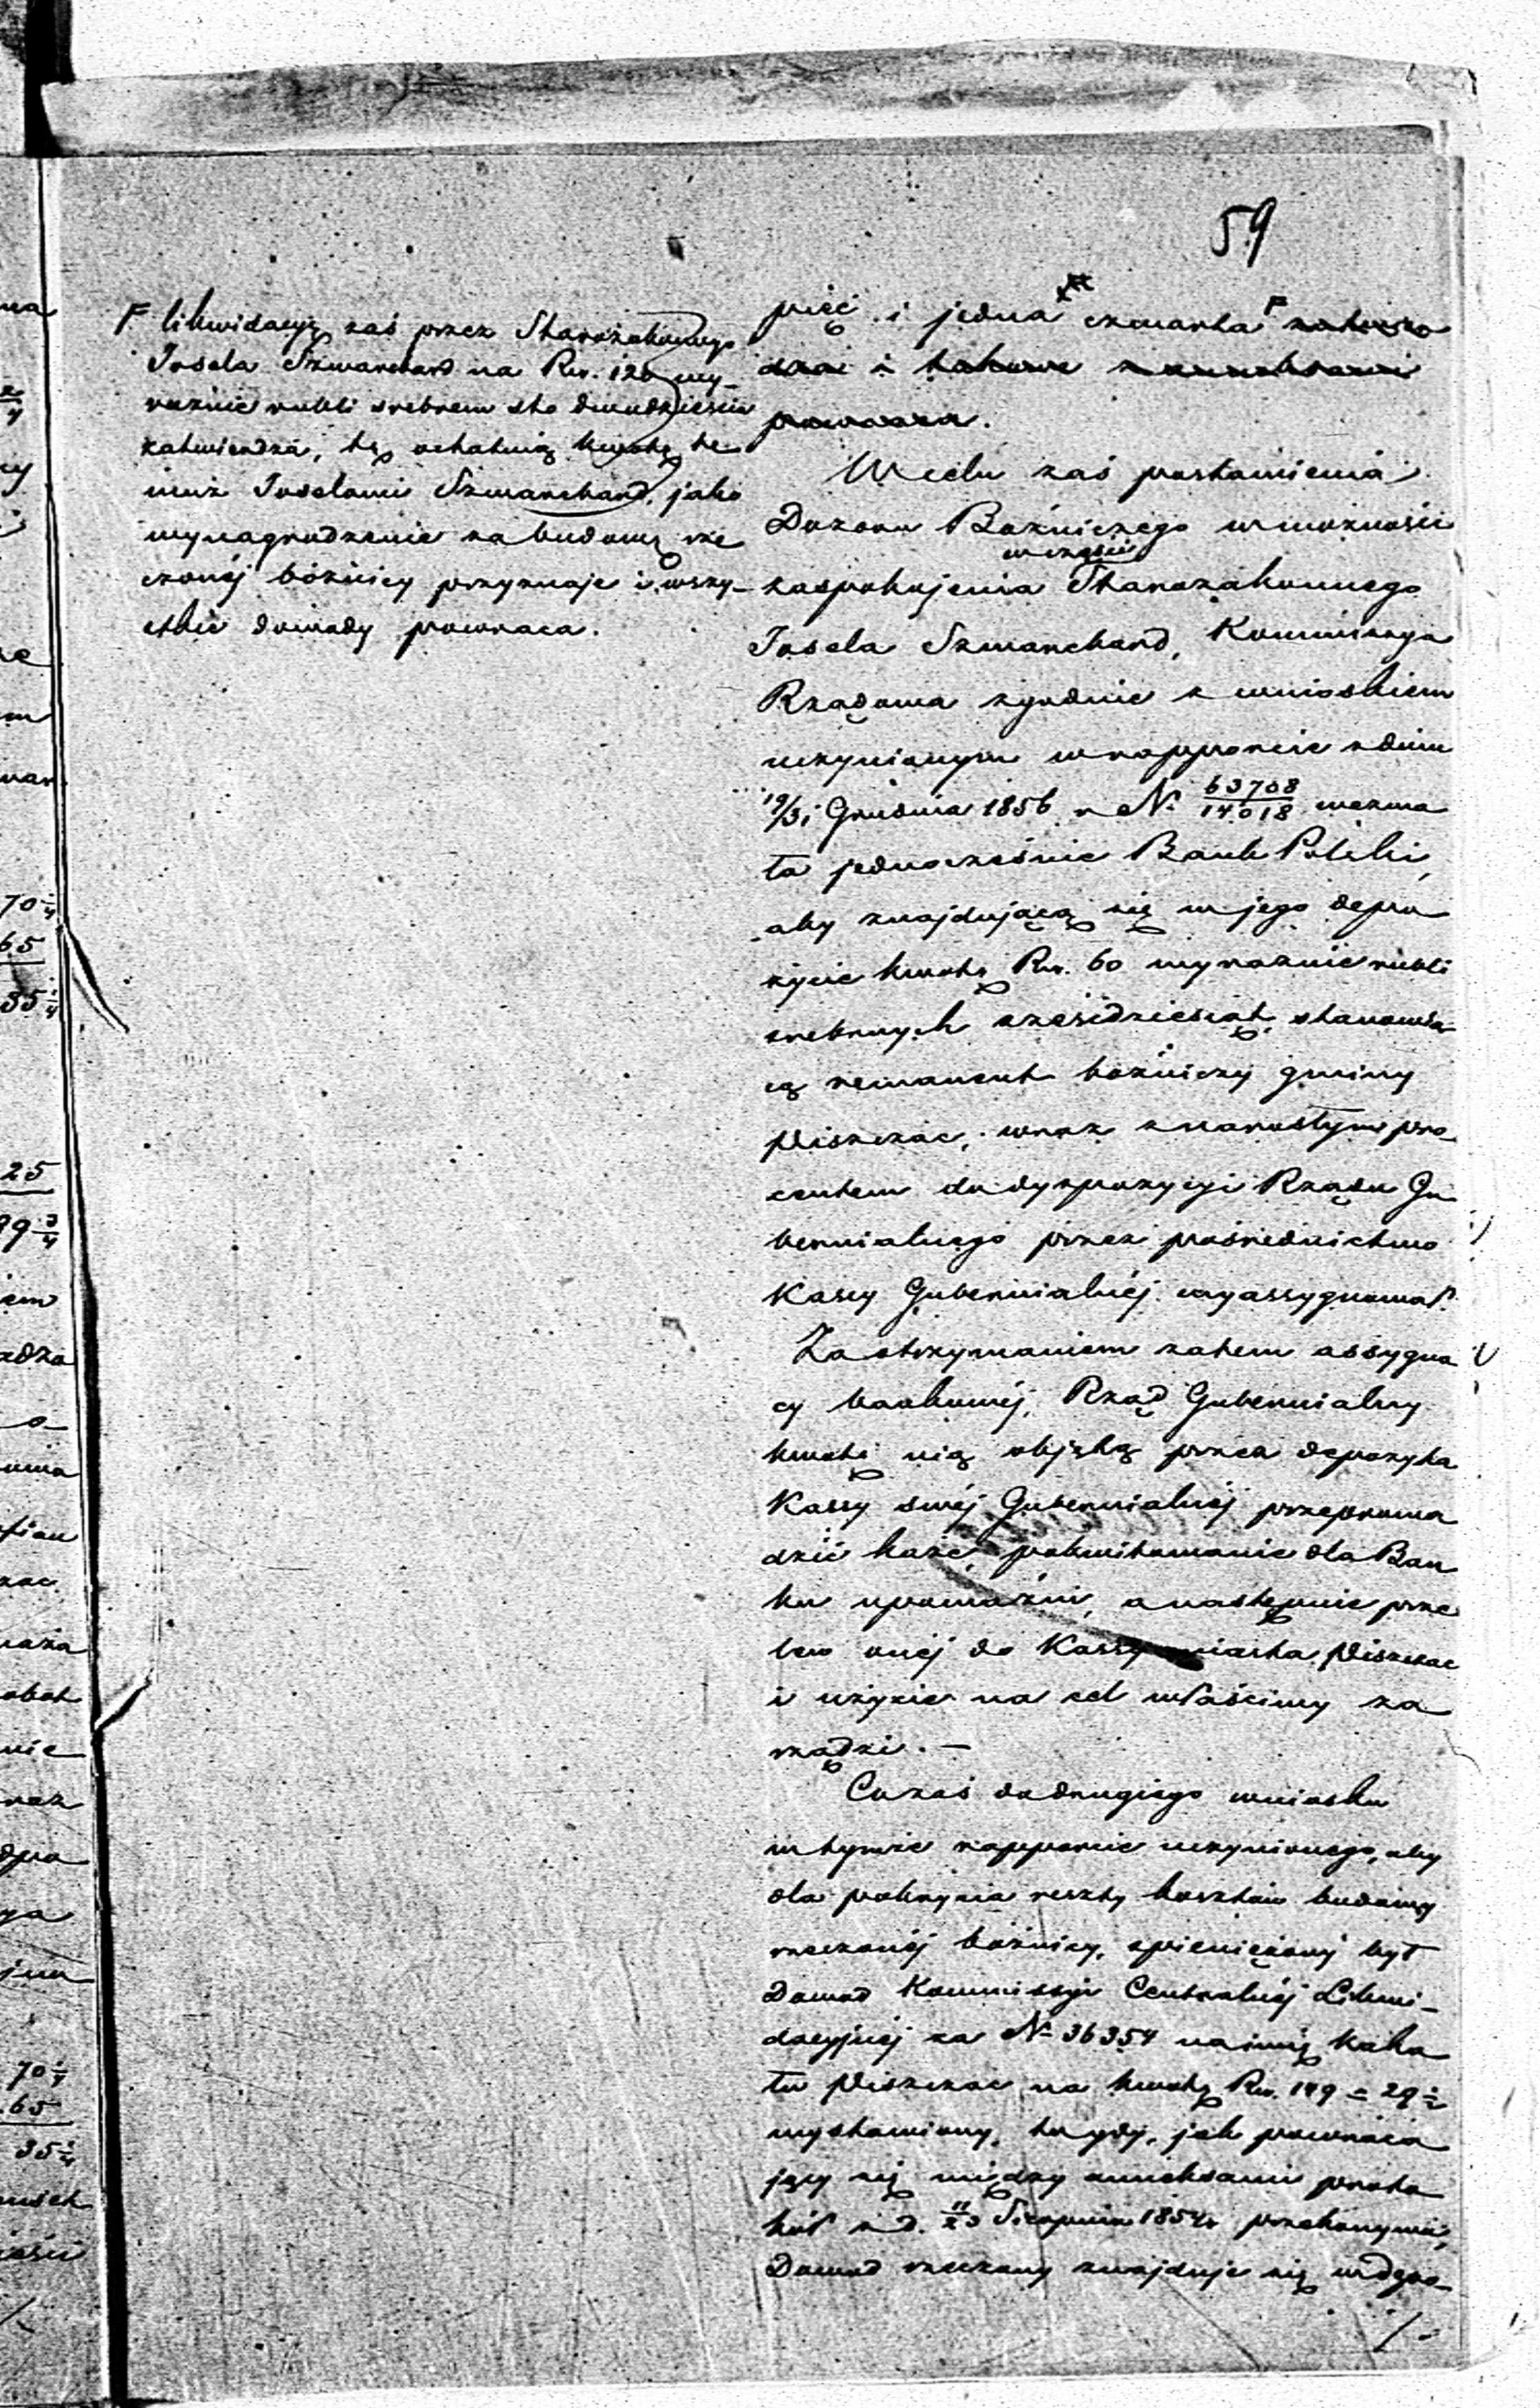 59
F likwidacyą zaś przez Starozakonnego
Josela Szwarcbard na Rsr. 120 wy-
raźnie rubli srebrem sto dwadzieścia
zatwierdza, tę ostatnią kwotę te
muż Joselowi Szwarcbard, jako
wynagrodzenie za budowę rze
czonéj bóżnicy przyznaje i wszy-
stkie dowody powraca.
pięć i jedna czwarta F zatwier
dza i takowe z annexami
powraca.
W celu zaś postawienia
Dozoru Bóżniczego w możności
w części
zaspokojenia Starozakonnego
Josela Szwarcbard, Kommissya
Rządowa zgodnie z wnioskiem
uczynionym w rapporcie z dnia
19/31 Grudnia 1856 r N. 63708/14018 wezwa
ła jednocześnie Bank Polski,
aby znajdującą się w jego depo
zycie kwotę Rsr. 60 wyraźnie rubli
srebrnych sześćdziesiąt, stanowią
cą remanent bóżniczy gminy
Piszczac, wraz z narosłym pro
centem do dyspozycyi Rządu Gu
bernialnego przez pośrednictwo
Kassy Gubernialnéj wyassygnował.
Za otrzymaniem zatem assygna
cy bankowéj, Rząd Gubernialny
kwotę nią objętą przez depozyta
Kassy swéj Gubernialnéj przeprowa
dzić każe, pokwitowanie dla Ban
ku upoważni, a następnie prze
lew onéj do Kassy miasta Piszczac
i użycie na cel właściwy za
rządzi. —
Co zaś do drugiego wniosku
w tymże rapporcie uczynionego, aby
dla pokrycia reszty kosztów budowy
rzeczonéj bóżnicy, spieniężony był
Dowód Kommissyi Centralnéj Likwi-
dacyjnéj za N 36354 na imię Kaha
łu Piszczac na kwotę Rsr. 149 = 29 1/2
wystawiony, to gdy, jak powraca
jący się między annexami proto
kół z d. 11/23 Sierpnia 1854 r przekonywa,
Dowód rzeczony znajduje się w depo-
/-